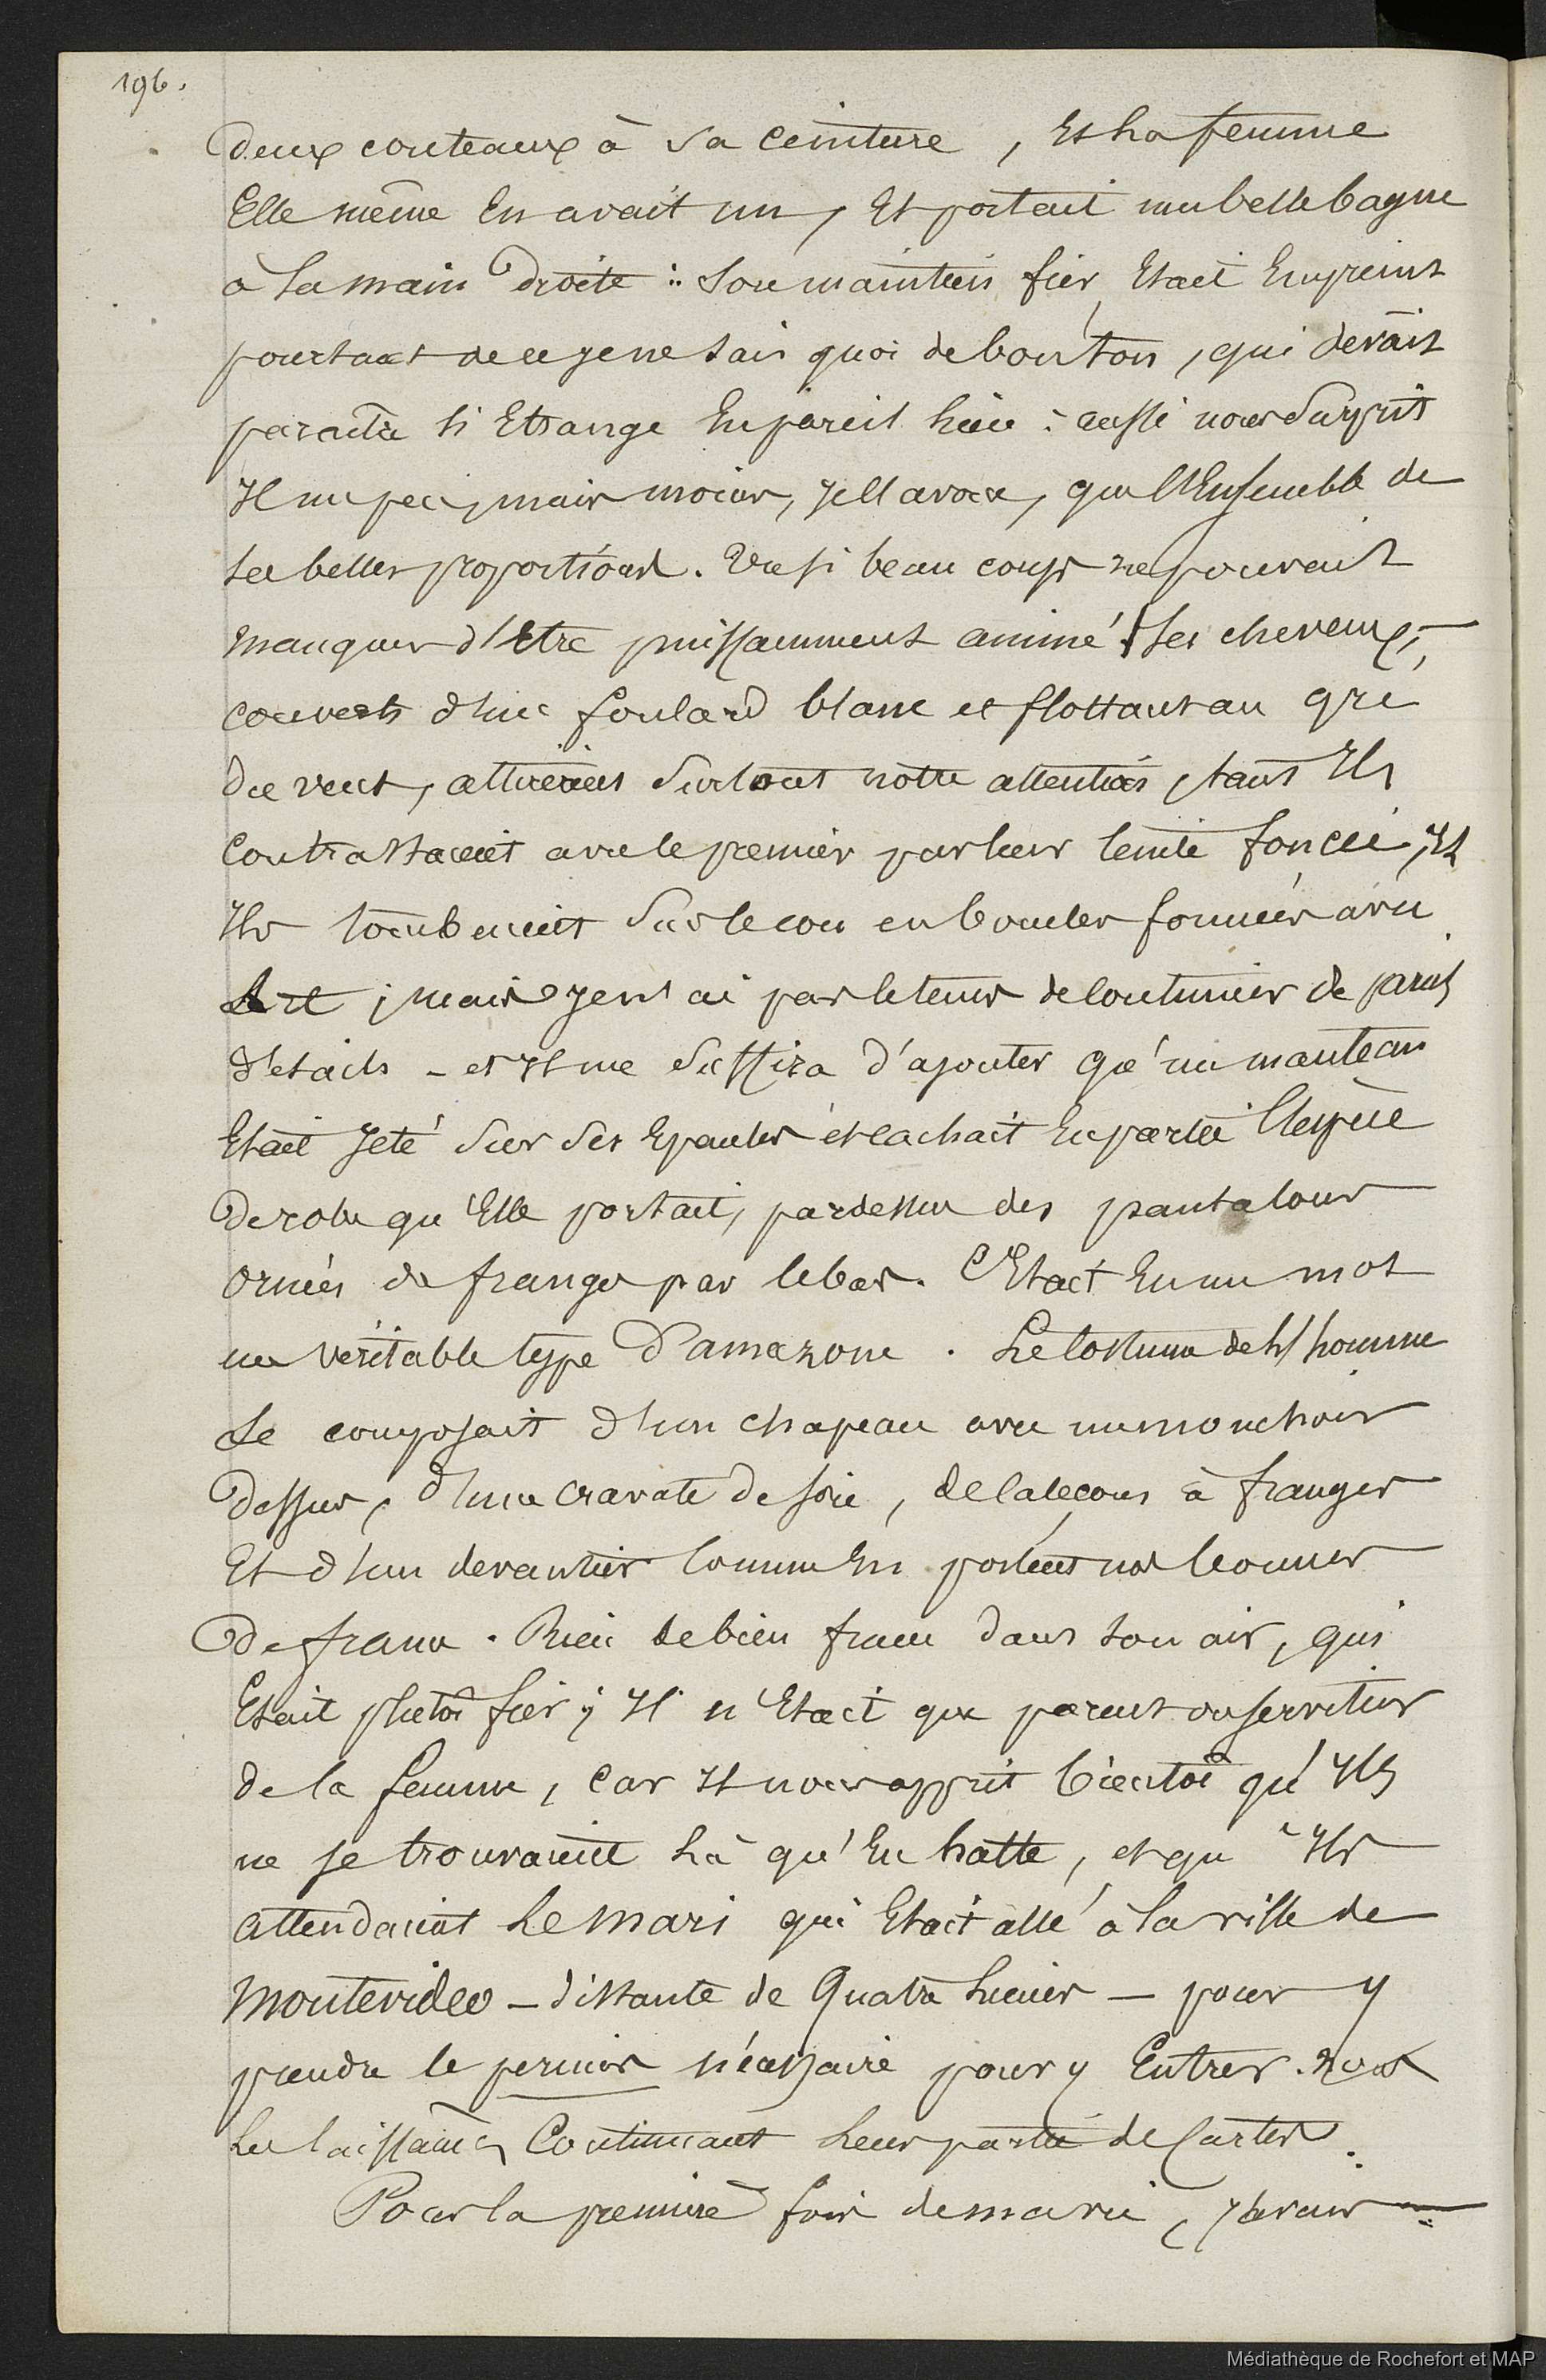 196.
deux couteaux à sa ceinture, Et la femme
Elle même En avait un, Et portait une belle bague
à la main droite : Son maintien fier Etait Empreint
pourtant de ce je ne sais quoi de bon ton, qui devait
paraître si Etrange En pareil lieu : aussi nous surprit
Il un peu, mais moins, je l'avoue, que l'Ensemble de
ses belles proportions. Un si beau corps ne pouvait
manquer d'Etre puissamment animé. Ses cheveux,
couverts d'un foulard blanc et flottant au gré
du vent, attirèrent Surtout notre attention, tant Ils
contrastaient avec le premier par leur teinte foncée, Et
Ils tombaient Sur le cou en boucles formées avec
Art ; mais je n'ai pas le tems de continuer de pareils
détails - et Il me suffira d'ajouter qu'un manteau
Etait Jeté sur ses Epaules et cachait En partie l'espèce
de robe qu'Elle portait, pardessus des pantalons
ornés de franges par le bas. C'Etait En un mot
un véritable type d'amazone. Le Costume de l'homme
Se composait d'un chapeau avec un mouchoir
dessus, d'une cravate de soie, de caleçons à franges
Et d'un devantier comme En portent nos bonnes
de france. Rien de bien franc dans son air, qui
Etait plutôt fier ; Il n'Etait que parent ou serviteur
de la femme, Car Il nous apprit bientôt qu'Ils
ne se trouvaient Là qu'En halte, et qu'Ils
attendaient Le mari qui Etait allé à la ville de
Montevideo - distante de Quatre Lieues - pour y
prendre le permis nécessaire pour y Entrer. nous
Les laissâmes Continuant Leur partie de Cartes.
Pour la première fois de ma vie, j'avais
Médiathèque de Rochefort et MAP